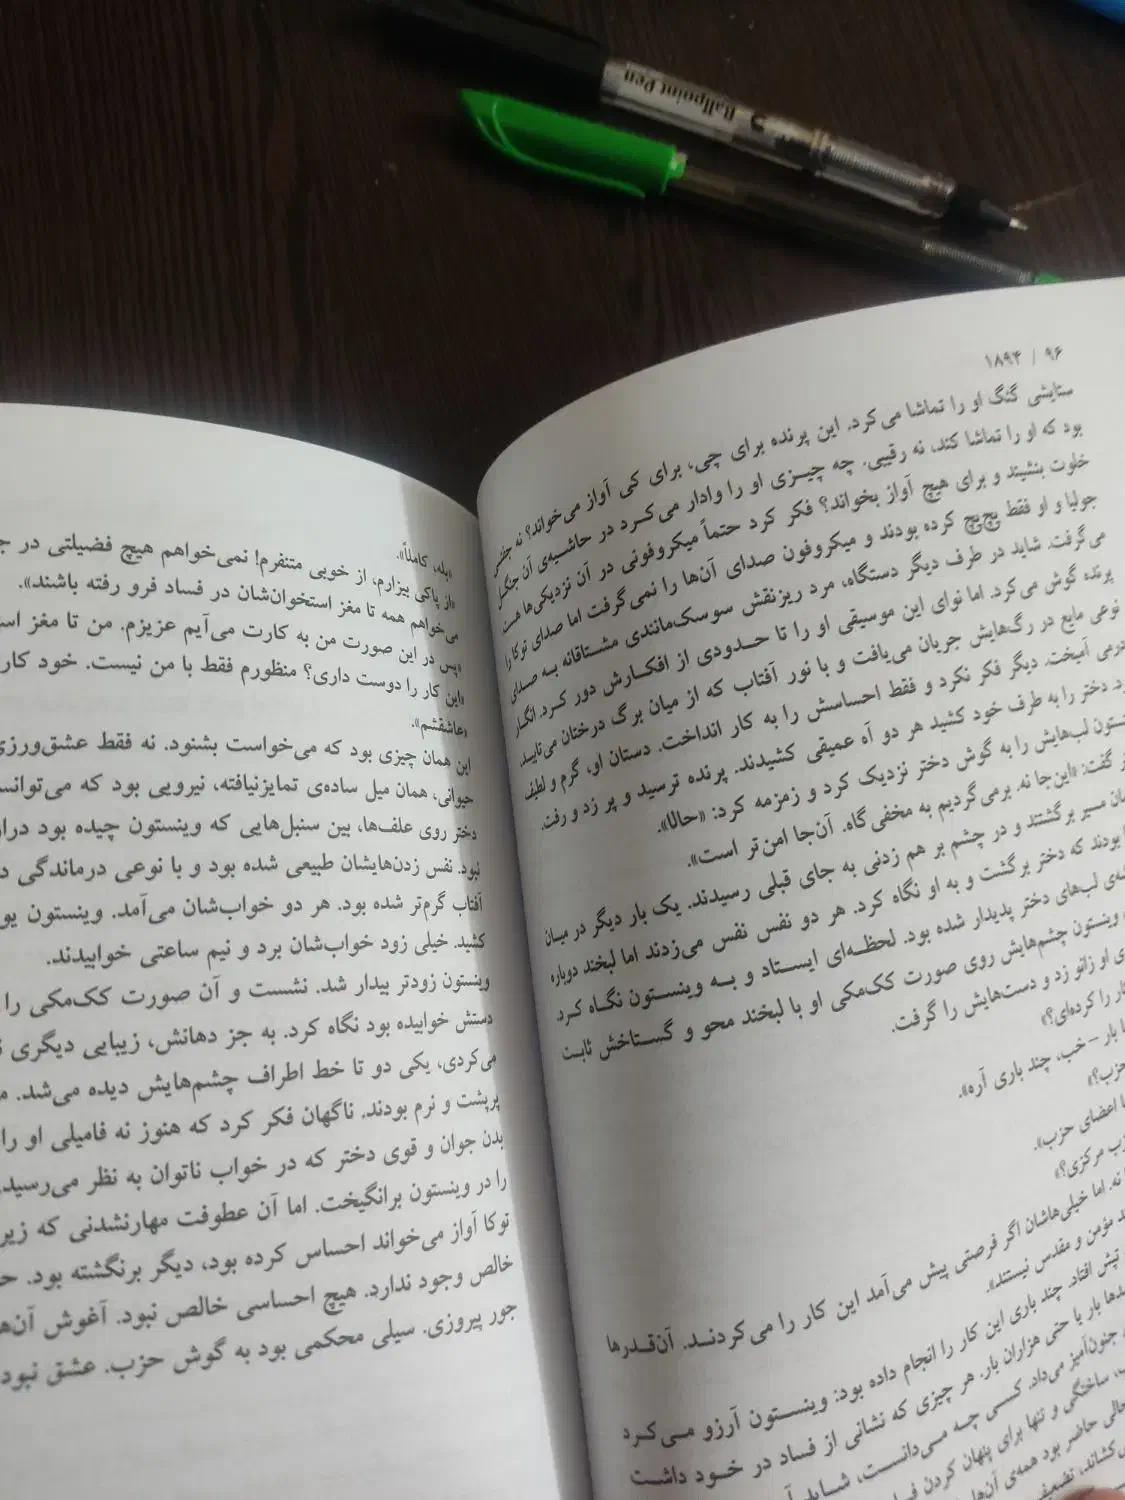 Ballpoint Pen
۹۶ / ۱۸۹۴
ستایشی گنگ او را تماشا می‌کرد. این پرنده برای چی، برای کی آواز می‌خواند؟ نه جفتی
بود که او را تماشا کند، نه رقیبی. چه چیزی او را وادار می‌کرد در حاشیه‌ی آن جنگل
خلوت بنشیند و برای هیچ آواز بخواند؟ فکر کرد حتماً میکروفونی در آن نزدیکی‌ها هست
جولیا و او فقط پچ‌پچ کرده بودند و میکروفون صدای آن‌ها را نمی‌گرفت اما صدای توکا را
می‌گرفت. شاید در طرف دیگر دستگاه، مرد ریزنقش سوسک‌مانندی مشتاقانه به صدای
پرنده گوش می‌کرد. اما نوای این موسیقی او را تا حدودی از افکارش دور کرد. انگار
نوعی مایع در رگ‌هایش جریان می‌یافت و با نور آفتاب که از میان برگ درختان می‌تابید،
درمی آمیخت. دیگر فکر نکرد و فقط احساسش را به کار انداخت. دستان او، گرم و لطیف
دختر را به طرف خود کشید هر دو آه عمیقی کشیدند. پرنده ترسید و پر زد و رفت.
لب‌هایش را به گوش دختر نزدیک کرد و زمزمه کرد: «حالا».
گفت: «این‌جا نه. برمی‌گردیم به مخفی‌گاه. آن‌جا امن‌تر است».
مسیر برگشتند و در چشم بر هم زدنی به جای قبلی رسیدند. یک بار دیگر در میان
بودند که دختر برگشت و به او نگاه کرد. هر دو نفس نفس می‌زدند اما لبخند دوباره
لب‌های دختر پدیدار شده بود. لحظه‌ای ایستاد و به وینستون نگاه کرد.
وینستون چشم‌هایش روی صورت کک‌مکی او با لبخند محو و گستاخش ثابت
او زانو زد و دست‌هایش را گرفت.
را کرده‌ای؟»
بار – خب، چند باری آره».
حزب؟»
اعضای حزب».
مرکزی؟»
نه. اما خیلی‌هاشان اگر فرصتی پیش می‌آمد این کار را می‌کردند. آن‌قدرها
مؤمن و مقدس نیستند».
تپش افتاد. چند باری این کار را انجام داده بود: وینستون آرزو می‌کرد
بار یا حتی هزاران بار. هر چیزی که نشانی از فساد در خود داشت
جنون‌آمیز می‌داد. کسی چه می‌دانست، شاید
ساختگی و تنها برای پنهان کردن
حاضر بود همه‌ی
«بله، کاملاً».
«از پاکی بیزارم، از خوبی متنفرم! نمی‌خواهم هیچ فضیلتی در
می‌خواهم همه تا مغز استخوان‌شان در فساد فرو رفته باشند».
«پس در این صورت من به کارت می‌آیم عزیزم. من تا مغز
«این کار را دوست داری؟ منظورم فقط با من نیست. خود کار
«عاشقشم».
این همان چیزی بود که می‌خواست بشنود. نه فقط عشق‌ورزی
حیوانی، همان میل ساده‌ی تمایزنیافته، نیرویی بود که می‌توانست
دختر روی علف‌ها، بین سنبل‌هایی که وینستون چیده بود دراز
نبود. نفس زدن‌هایشان طبیعی شده بود و با نوعی درماندگی
آفتاب گرم‌تر شده بود. هر دو خواب‌شان می‌آمد. وینستون
کشید. خیلی زود خواب‌شان برد و نیم ساعتی خوابیدند.
وینستون زودتر بیدار شد. نشست و آن صورت کک‌مکی را
دستش خوابیده بود نگاه کرد. به جز دهانش، زیبایی دیگری
می‌کردی، یکی دو تا خط اطراف چشم‌هایش دیده می‌شد.
پرپشت و نرم بودند. ناگهان فکر کرد که هنوز نه فامیلی او را
بدن جوان و قوی دختر که در خواب ناتوان به نظر می‌رسید،
را در وینستون برانگیخت. اما آن عطوفت مهارنشدنی که زیر
توکا آواز می‌خواند احساس کرده بود، دیگر برنگشته بود.
خالص وجود ندارد. هیچ احساسی خالص نبود. آغوش
جور پیروزی. سیلی محکمی بود به گوش حزب. عشق نبود